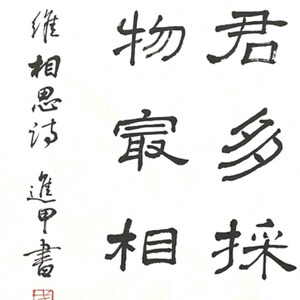 君多採
物冣相
維相思詩 進甲書